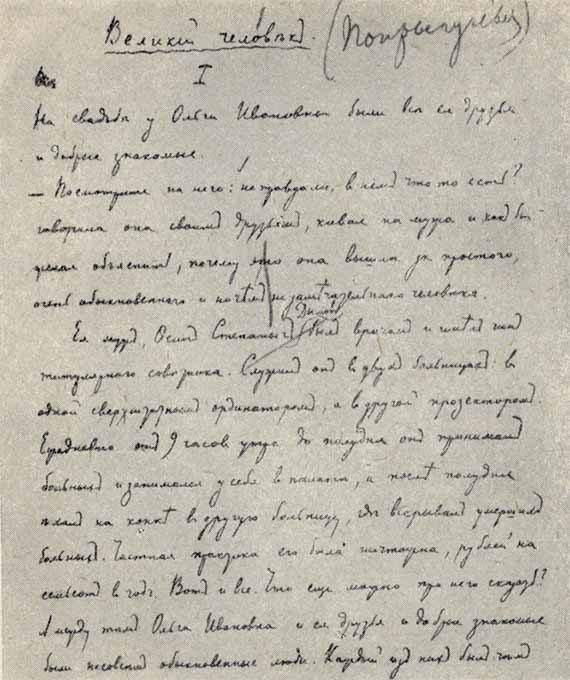 Великій человѣкъ.
I
На свадьбѣ у Ольги Ивановны были всѣ ея друзья
и добрые знакомые.
— Посмотрите на него: не правда ли, въ немъ что то есть?
говорила она своимъ друзьямъ, кивая на мужа и какъ бы
желая объяснить, почему это она вышла за простого,
очень обыкновеннаго и ничѣмъ не замѣчательнаго человѣка.
Ея мужъ, Осипъ Степанычъ Дымовъ былъ врачомъ и имѣлъ чинъ
титулярнаго совѣтника. Служилъ онъ въ двухъ больницахъ: въ
одной сверхштатнымъ ординаторомъ, а въ другой прозекторомъ.
Ежедневно отъ 9 часовъ утра до полудня онъ принималъ
больныхъ и занимался у себя въ палатѣ, а послѣ полудня
ѣхалъ на конкѣ въ другую больницу, гдѣ вскрывалъ умершихъ
больныхъ. Частная практика его была ничтожна, рублей на
семьсотъ въ годъ. Вотъ и все. Что еще можно про него сказать?
А между тѣмъ Ольга Ивановна и ея друзья и добрые знакомые
были не совсѣмъ обыкновенные люди. Каждый изъ нихъ былъ чѣмъ